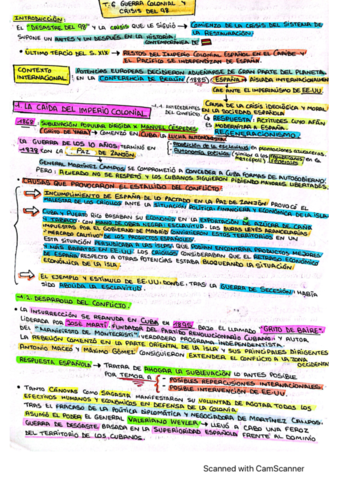 T.6 GUERRA COLONIAL Y
CRISIS DEL 98
INTRODUCCIÓN:
EL "DESASTRE DEL 98" Y LA CRISIS QUE LE SIGUIÓ → COMIENZO DE LA CRISIS DEL SISTEMA DE LA RESTAURACIÓN
SUPONE UN ANTES Y UN DESPUÉS EN LA HISTORIA CONTEMPORÁNEA DE
ÚLTIMO TERCIO DEL S. XIX → RESTOS DEL IMPERIO COLONIAL ESPAÑOL EN EL CARIBE Y EL PACÍFICO SE INDEPENDIZAN DE ESPAÑA.
CONTEXTO INTERNACIONAL
POTENCIAS EUROPEAS DECIDIERON ADUEÑARSE DE GRAN PARTE DEL PLANETA
EN LA CONFERENCIA DE BERLÍN (1885)
ESPAÑA → AISLADA INTERNACIONALMENTE
CAE ANTE EL IMPERIALISMO DE EE.UU.
1. LA CAÍDA DEL IMPERIO COLONIAL
1.1. ANTECEDENTES DEL CONFLICTO
CAUSA DE LA CRISIS IDEOLÓGICA Y MORAL EN LA SOCIEDAD ESPAÑOLA
RESPUESTA: ACTITUDES
MODERNIZAR A ESPAÑA.
REGENERACIONISMO
1868 SUBLEVACIÓN POPULAR DIRIGIDA X MANUEL CÉSPEDES
("GRITO DE YARA") → COMENZÓ EN CUBA LA LUCHA
LA GUERRA DE LOS 10 AÑOS, TERMINÓ EN
1878 CON LA "PAZ DE ZANJÓN"
GENERAL MARTÍNEZ CAMPOS SE COMPROMETIÓ A CONCEDER A CUBA FORMAS DE AUTOGOBIERNO
PERO: ACUERDO NO SE RESPETÓ, Y LOS CUBANOS SIGUIERON PIDIENDO MAYORES LIBERTADES.
CAUSAS QUE PROVOCARON EL ESTALLIDO DEL CONFLICTO:
INCUMPLIMIENTO DE ESPAÑA DE LO PACTADO EN LA PAZ DE ZANJÓN PROVOCÓ EL
MALESTAR DE LOS CRIOLLOS ANTE LA SITUACIÓN POLÍTICA, FINANCIERA Y ECONÓMICA DE LA ISLA
CUBA Y PUERTO RICO BASABAN SU ECONOMÍA EN LA EXPORTACIÓN DE AZÚCAR DE CAÑA
Y TABACO, CON MANO DE OBRA NEGRA ESCLAVIZADA. LAS DURAS LEYES ARANCELARIAS
IMPUESTAS POR EL GOBIERNO DE MADRID CONVIRTIERON ESTOS TERRITORIOS EN UN
"MERCADO CAUTIVO" DE LOS PRODUCTOS ESPAÑOLES.
ESTA SITUACIÓN PERJUDICABA A LAS ISLAS QUE PODÍAN ENCONTRAR PRODUCTOS MEJORES
Y MÁS BARATOS EN EE.UU. LOS CRIOLLOS CONSIDERABAN QUE EL RETRASO ECONÓMICO
DE ESPAÑA RESPECTO A OTRAS POTENCIAS ESTABA BLOQUEANDO LA SITUACIÓN
ECONÓMICA DE LA ISLA.
EL EJEMPLO Y ESTÍMULO DE EE.UU. DONDE, TRAS LA GUERRA DE SECESIÓN HABÍA
SIDO ABOLIDA LA ESCLAVITUD.
1.2. DESARROLLO DEL CONFLICTO.
LA INSURRECCIÓN SE REANUDA EN CUBA EN 1895, BAJO EL LLAMADO "GRITO DE BAIRE".
LIDERADA POR JOSÉ MARTÍ, FUNDADOR DEL PARTIDO REVOLUCIONARIO CUBANO Y AUTOR
DEL "MANIFIESTO DE MONTECRISTI", VERDADERO PROGRAMA INDEPENDENTISTA.
LA REBELIÓN COMENZÓ EN LA PARTE ORIENTAL DE LA ISLA Y SUS PRINCIPALES DIRIGENTES
ANTONIO MACEO Y MÁXIMO GÓMEZ CONSIGUIERON EXTENDER EL CONFLICTO A LA ZONA OCCIDENTAL
RESPUESTA ESPAÑOLA → TRATAR DE AHOGAR LA SUBLEVACIÓN LO ANTES POSIBLE
POR TEMOR A
POSIBLES REPERCUSIONES INTERNACIONALES.
POSIBLE INTERVENCIÓN DE EE.UU.
TANTO CÁNOVAS COMO SAGASTA MANIFESTARON SU VOLUNTAD DE AGOTAR TODOS LOS
EFECTIVOS HUMANOS Y ECONÓMICOS EN DEFENSA DE LA COLONIA.
TRAS EL FRACASO DE LA POLÍTICA DIPLOMÁTICA Y NEGOCIADORA DE MARTÍNEZ CAMPOS,
ASUMIÓ EL PODER EL GENERAL VALERIANO WEYLER → LLEVÓ A CABO UNA FEROZ
GUERRA DE DESGASTE BASADA EN LA SUPERIORIDAD ESPAÑOLA FRENTE AL DOMINIO
DEL TERRITORIO DE LOS CUBANOS.
Scanned with CamScanner